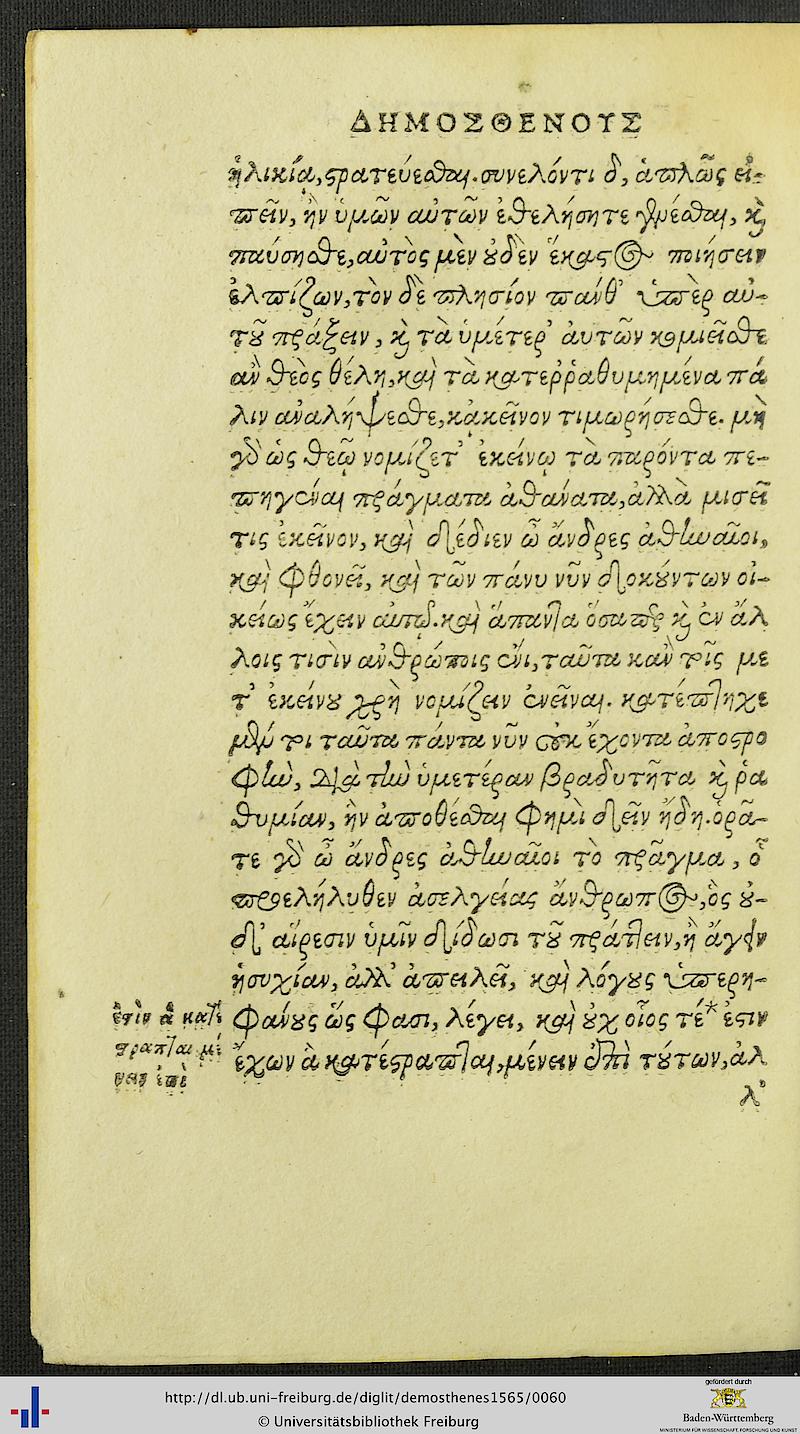 ΔΗΜΟΣΘΕΝΟΥΣ
ἡλικίᾳ, στρατεύεσθαι. συνελόντι δ, ἁπλῶς εἰ-
πεῖν, ἢν ὑμῶν αὐτῶν ἐθελήσητε γενέσθαι, καὶ
παύσησθε, αὐτὸς μὲν οὐδὲν ἕκαστος ποιήσειν
ἐλπίζων, τὸν δὲ πλησίον πάνθ' ὑπὲρ αὑ-
τοῦ πράξειν, καὶ τὰ ὑμέτερ' αὐτῶν κομιεῖσθε
ἂν θεὸς θέλῃ, καὶ τὰ κατερῥαθυμημένα πά
λιν ἀναλήψεσθε, κἀκεῖνον τιμωρήσεσθε. μὴ
γὰρ ὡς θεῷ νομίζετ' ἐκείνῳ τὰ παρόντα πε-
πηγέναι πράγματα ἀθάνατα, ἀλλὰ μισεῖ
τις ἐκεῖνον, καὶ δέδιεν ὦ ἄνδρες ἀθηναῖοι,
καὶ φθονεῖ, καὶ τῶν πάνυ νῦν δοκούντων οἰ-
κείως ἔχειν αὐτῷ. καὶ ἅπαντα ὅσα περ καὶ ἐν ἄλ
λοις τισὶν ἀνθρώποις ἔνι, ταῦτα κἀν τοῖς με
τ' ἐκείνου χρὴ νομίζειν ἐνεῖναι. κατέπτηχε
μέν τοι ταῦτα πάντα νῦν οὐκ ἔχοντα ἀποστρο
φὴν, διὰ τὴν ὑμετέραν βραδυτῆτα καὶ ῥα
θυμίαν, ἣν ἀποθέσθαι φημὶ δεῖν ἤδη. ὁρᾶ-
τε γὰρ ὦ ἄνδρες ἀθηναῖοι τὸ πρᾶγμα, οἷ
προελήλυθεν ἀσελγείας ἄνθρωπος, ὃς οὐ-
δ' αἵρεσιν ὑμῖν δίδωσι τοῦ πράττειν, ἢ ἄγειν
ἡσυχίαν, ἀλλ' ἀπειλεῖ, καὶ λόγους ὑπερη-
φάνους ὥς φασι, λέγει, καὶ οὐχ οἷος τέ* ἐστιν
ἔχων ἃ κατέστραπται, μένειν ἐπὶ τούτων, ἀλ
λ'
ἐστὶν ἃ κατέ
στραπται μέ
νειν ἐπὶ
http://dl.ub.uni-freiburg.de/diglit/demosthenes1565/0060
© Universitätsbibliothek Freiburg
gefördert durch
Baden-Württemberg
MINISTERIUM FÜR WISSENSCHAFT, FORSCHUNG UND KUNST